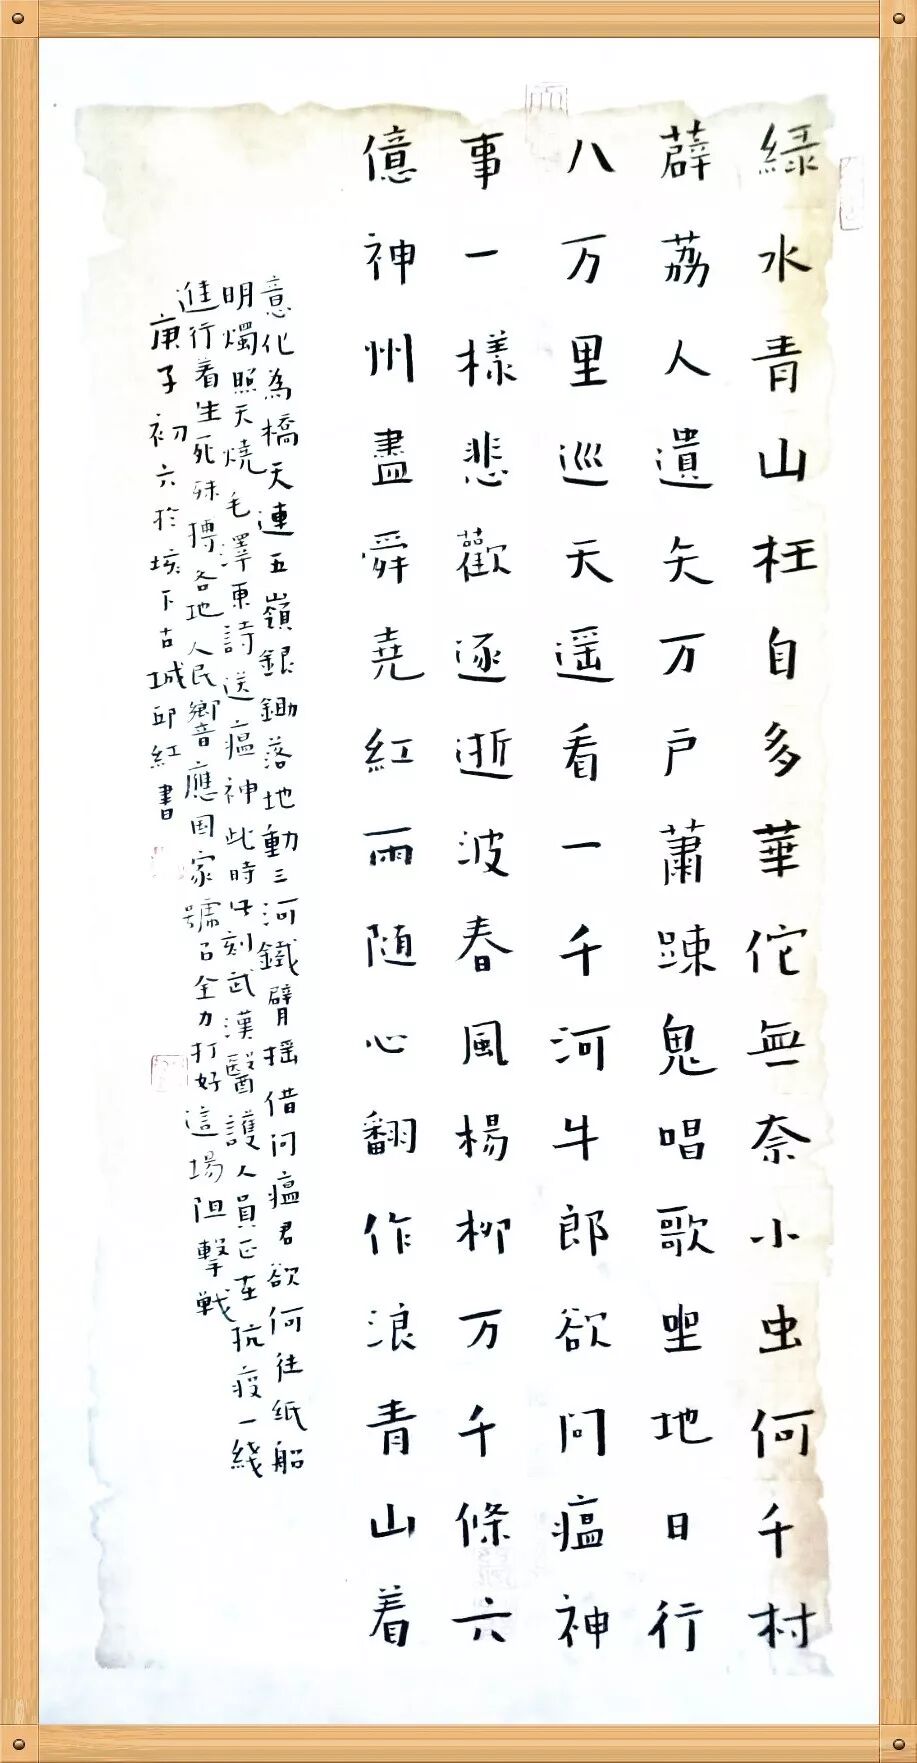 綠水青山枉自多華佗無奈小虫何千村
薜荔人遺矢万户蕭踈鬼唱歌坐地日行
八万里巡天遥看一千河牛郎欲问瘟神
事一樣悲歡逐逝波春風楊柳万千條六
億神州盡舜堯紅雨随心翻作浪青山着
意化為橋天連五嶺銀鋤落地動三河鐵臂摇借问瘟君欲何往纸船
明燭照天燒毛澤東詩送瘟神此時此刻武漢醫護人員正在抗疫一綫
進行着生死殊摶各地人民響應国家號召全力打好這場阻擊戦
庚子初六於垓下古城邱紅書